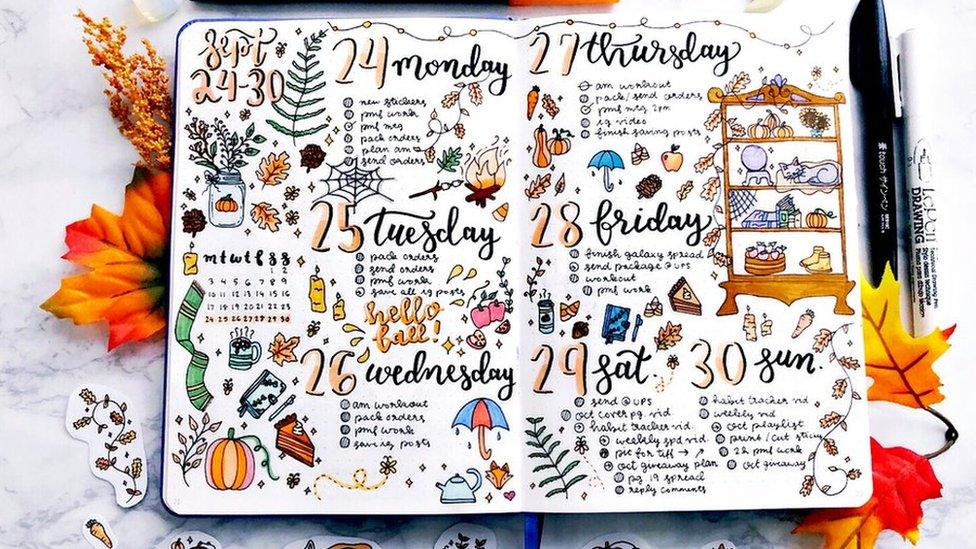 Sept
24-30
m t w t f s s
1 2
3 4 5 6 7 8 9
10 11 12 13 14 15 16
17 18 19 20 21 22 23
24 25 26 27 28 29 30
24 monday
new stickers
pmf work
pmf mtg
pack orders
plan am
send orders
25 tuesday
pack orders
send orders
pmf work
save all ig posts
hello
fall!
26 wednesday
am workout
pack orders
pmf work
save ig posts
27 thursday
am workout
pack/send orders
pmf mtg 2pm
ig video
finish saving posts
28 friday
finish galaxy spread
send package @ UPS
workout
pmf work
29 sat.
send @ UPS
oct cover pg. vid.
habit tracker vid.
weekly spd vid.
pic for tiff
oct giveaway plan
pg 19 spread
reply comments
30 sun.
habit tracker vid
weekly vid
oct playlist
print/cut
2h pmf work
oct giveaway
DRAWING